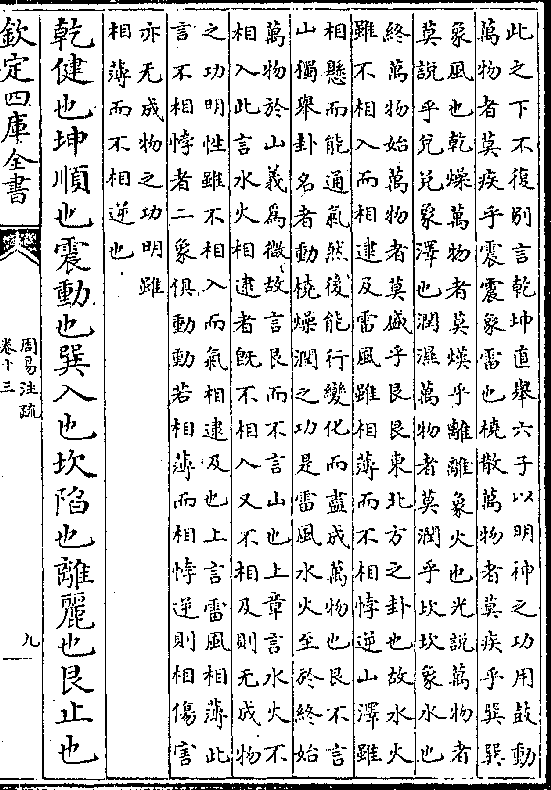 此之下不復别言乾坤直舉六子以明神之功用鼓動
萬物者莫疾乎震震象雷也橈散萬物者莫疾乎巽巽
象風也乾燥萬物者莫熯乎離離象火也光說萬物者
莫說乎兊兊象澤也潤濕萬物者莫潤乎坎坎象水也
終萬物始萬物者莫盛乎艮艮東北方之卦也故水火
雖不相入而相逮及雷風雖相薄而不相悖逆山澤雖
相懸而能通氣然後能行變化而盡成萬物也艮不言
山獨舉卦名者動橈燥潤之功是雷風水火至於終始
萬物於山義為微故言艮而不言山也上章言水火不
相入此言水火相逮者既不相入又不相及則无成物
之功明性雖不相入而氣相逮及也上言雷風相薄此
言不相悖者二象俱動動若相薄而相悖逆則相傷害
亦无成物之功明雖
相薄而不相逆也
乾健也坤順也震動也巽入也坎陷也離麗也艮止也
欽定四庫全書
周易注疏
卷十三
九